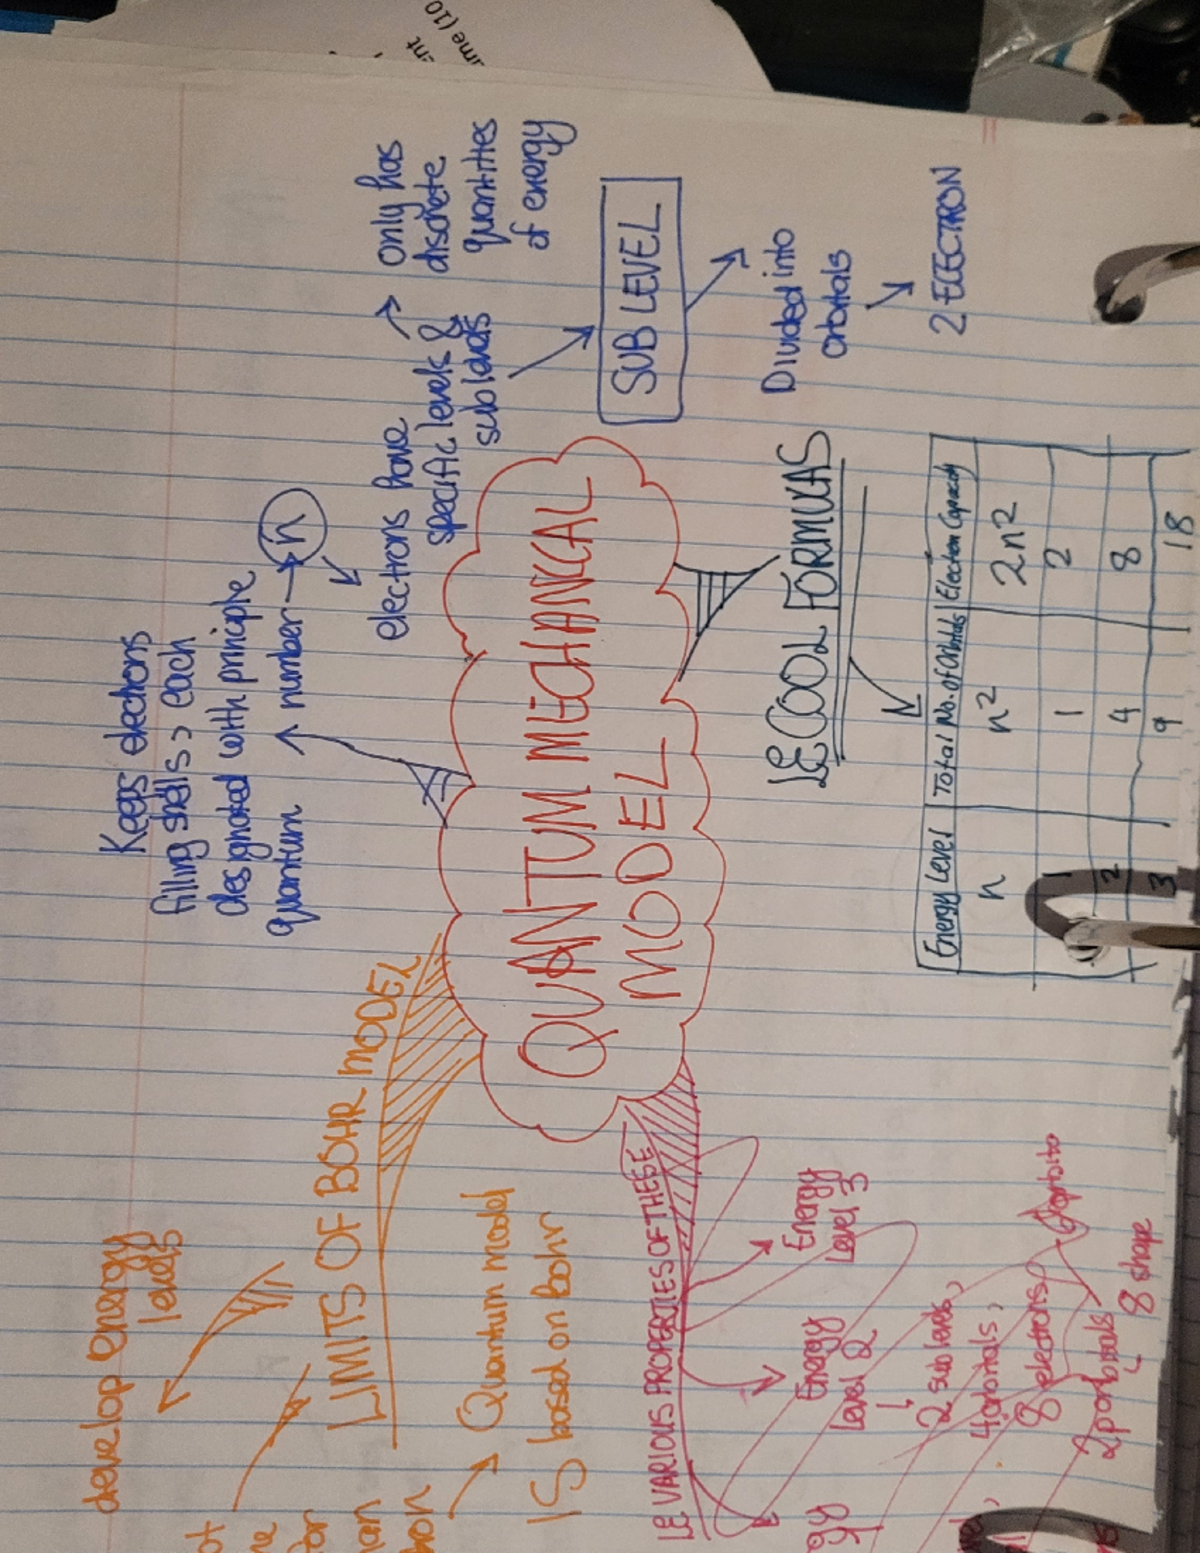 QUANTUM MECHANICAL
MODEL
Keeps electrons
filling shells > each
designated with principle
quantum
number
n
electrons have
specific levels &
sublevels
only has
discrete
quantities
of energy
SUB LEVEL
Divided into
orbitals
2 ELECTRON
LE COOL FORMULAS
Energy Level Total No. of Orbitals Electron Capacity
n n2 2n2
1 1 2
2 4 8
3 9 18
LIMITS OF BOHR MODEL
develop energy
levels
Quantum model
IS based on Bohr
LE VARIOUS PROPERTIES OF THESE
Energy
level 2
2 sub levels,
4 orbitals,
8 electrons,
8 shape
Energy
level 3